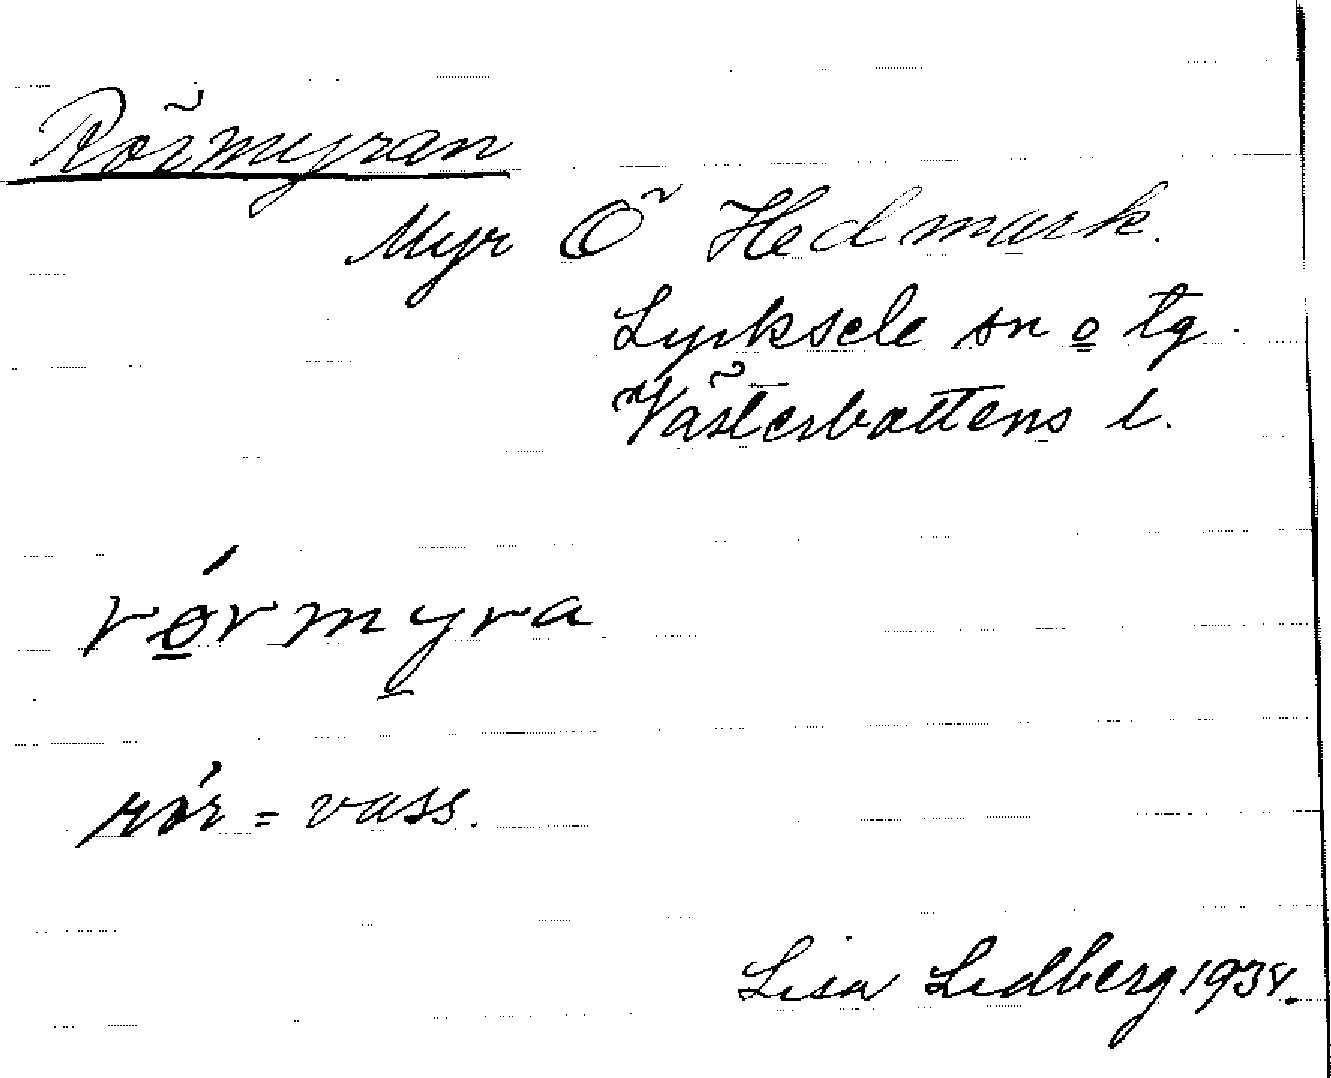 Rörmyran
Myr Ö Hedmark.
Lycksele sn o tg.
Västerbottens l.
rǿ̱rmy̱ra
rör = vass.
Lisa Lidberg 1934.